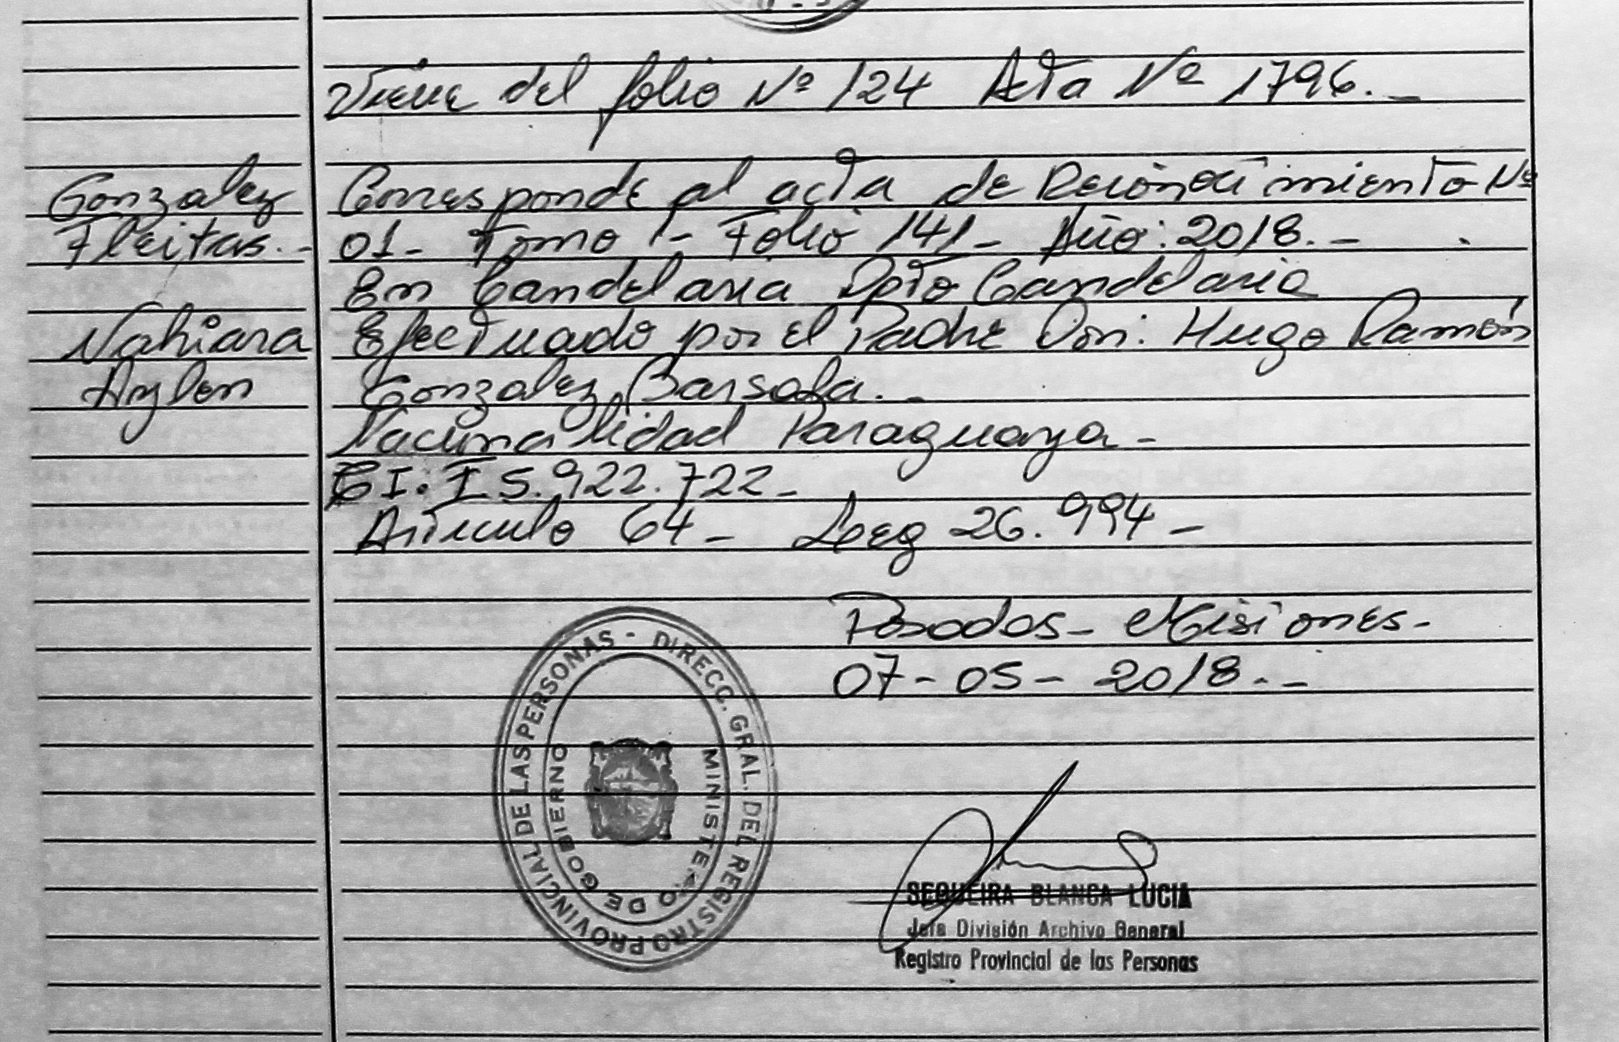 Viene del folio Nº 124 Acta Nº 1796.-
Gonzalez
Fleitas.-
Nahiara
Aylen
Corresponde al acta de Reconocimiento Nº
01- Tomo 1- Folio 141- Año: 2018.-
En Candelaria Dpto Candelaria
Efectuado por el Padre Don: Hugo Ramón
Gonzalez Barsola.-
Nacionalidad Paraguaya-
CI. I 5.922.722-
Articulo 64- Ley 26.994-
Posadas- Misiones-
07-05-2018.-
DIRECC. GRAL. DEL REGISTRO PROVINCIAL DE LAS PERSONAS -
MINISTERIO DE GOBIERNO
SEQUEIRA BLANCA LUCIA
Jefa División Archivo General
Registro Provincial de las Personas